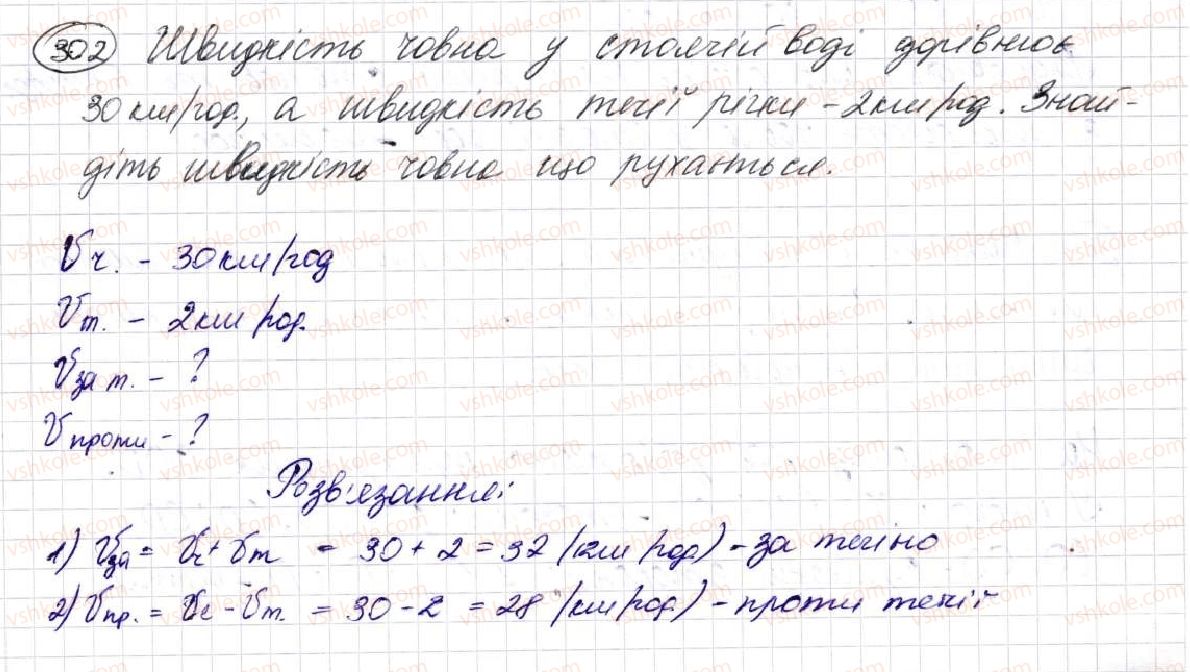 302 Швидкість човна у стоячій воді дорівнює
30 км/год., а швидкість течії річки – 2 км/год. Знай-
діть швидкість човна що рухається.
Vч. – 30 км/год
Vт. – 2 км/год.
Vза т. – ?
Vпроти – ?
Розв'язання:
1) Vза = Vч + Vт = 30 + 2 = 32 (км/год.) – за течією
2) Vпр. = Vс – Vт. = 30 – 2 = 28 (км/год.) – проти течії